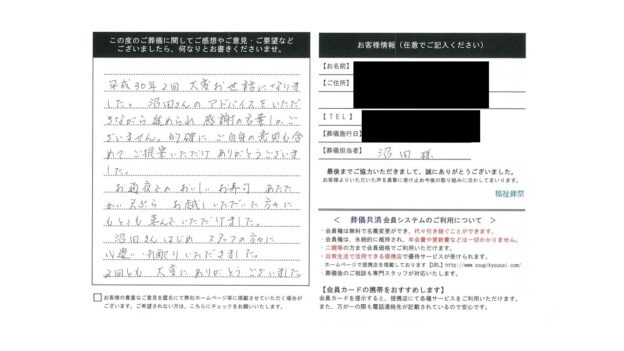 この度のご葬儀に関してご感想やご意見・ご要望など
ございましたら、何なりとお書きくださいませ。
平成30年2回 大変お世話になりまし
た。沼田さんのアドバイスをいただ
きながら進められ 感謝の言葉しかご
ざいません。的確に ご自身の意見も含
めて ご提案いただけ ありがとうございま
した。
お通夜でのおいしいお寿司 あたた
かい天ぷら お越しいただいた方々に
もとても喜んでいただけました。
沼田さんはじめ スタッフの方々に
心遣い 感謝いただきました。
2回とも 大変に ありがとうございました。
□ お客様の貴重なご意見を匿名にて弊社ホームページ等に掲載させていただく場合が
ございます。ご希望されない方は、こちらにチェックをお願いします。
お客様情報（任意でご記入ください）
【お名前】
【ご住所】
【TEL】
【葬儀施行日】
【葬儀担当者】 沼田 様
最後までご協力いただきまして、誠にありがとうございました。
お客様よりいただいた声を真摯に受け止め今後の取り組みに活かしてまいります。
福祉葬祭
＜ 葬儀共済会員システムのご利用について ＞
・会員権は無料で名義変更ができ、代々引き継ぐことができます。
・会員権は、永続的に維持され、年会費や更新費などは一切かかりません。
・二親等の方まで会員価格でご利用いただけます。
・日常生活で活用できる提携店で優待サービスが受けられます。
ホームページで提携店を掲載しております【URL】http://www.sougikyousai.com/
・葬儀後のご相談も専門スタッフが対応いたします。
【会員カードの携帯をおすすめします】
会員カードを提示すると、提携店にて各種サービスをご利用いただけます。
また、万が一の際も電話連絡先が記載されているので安心です。